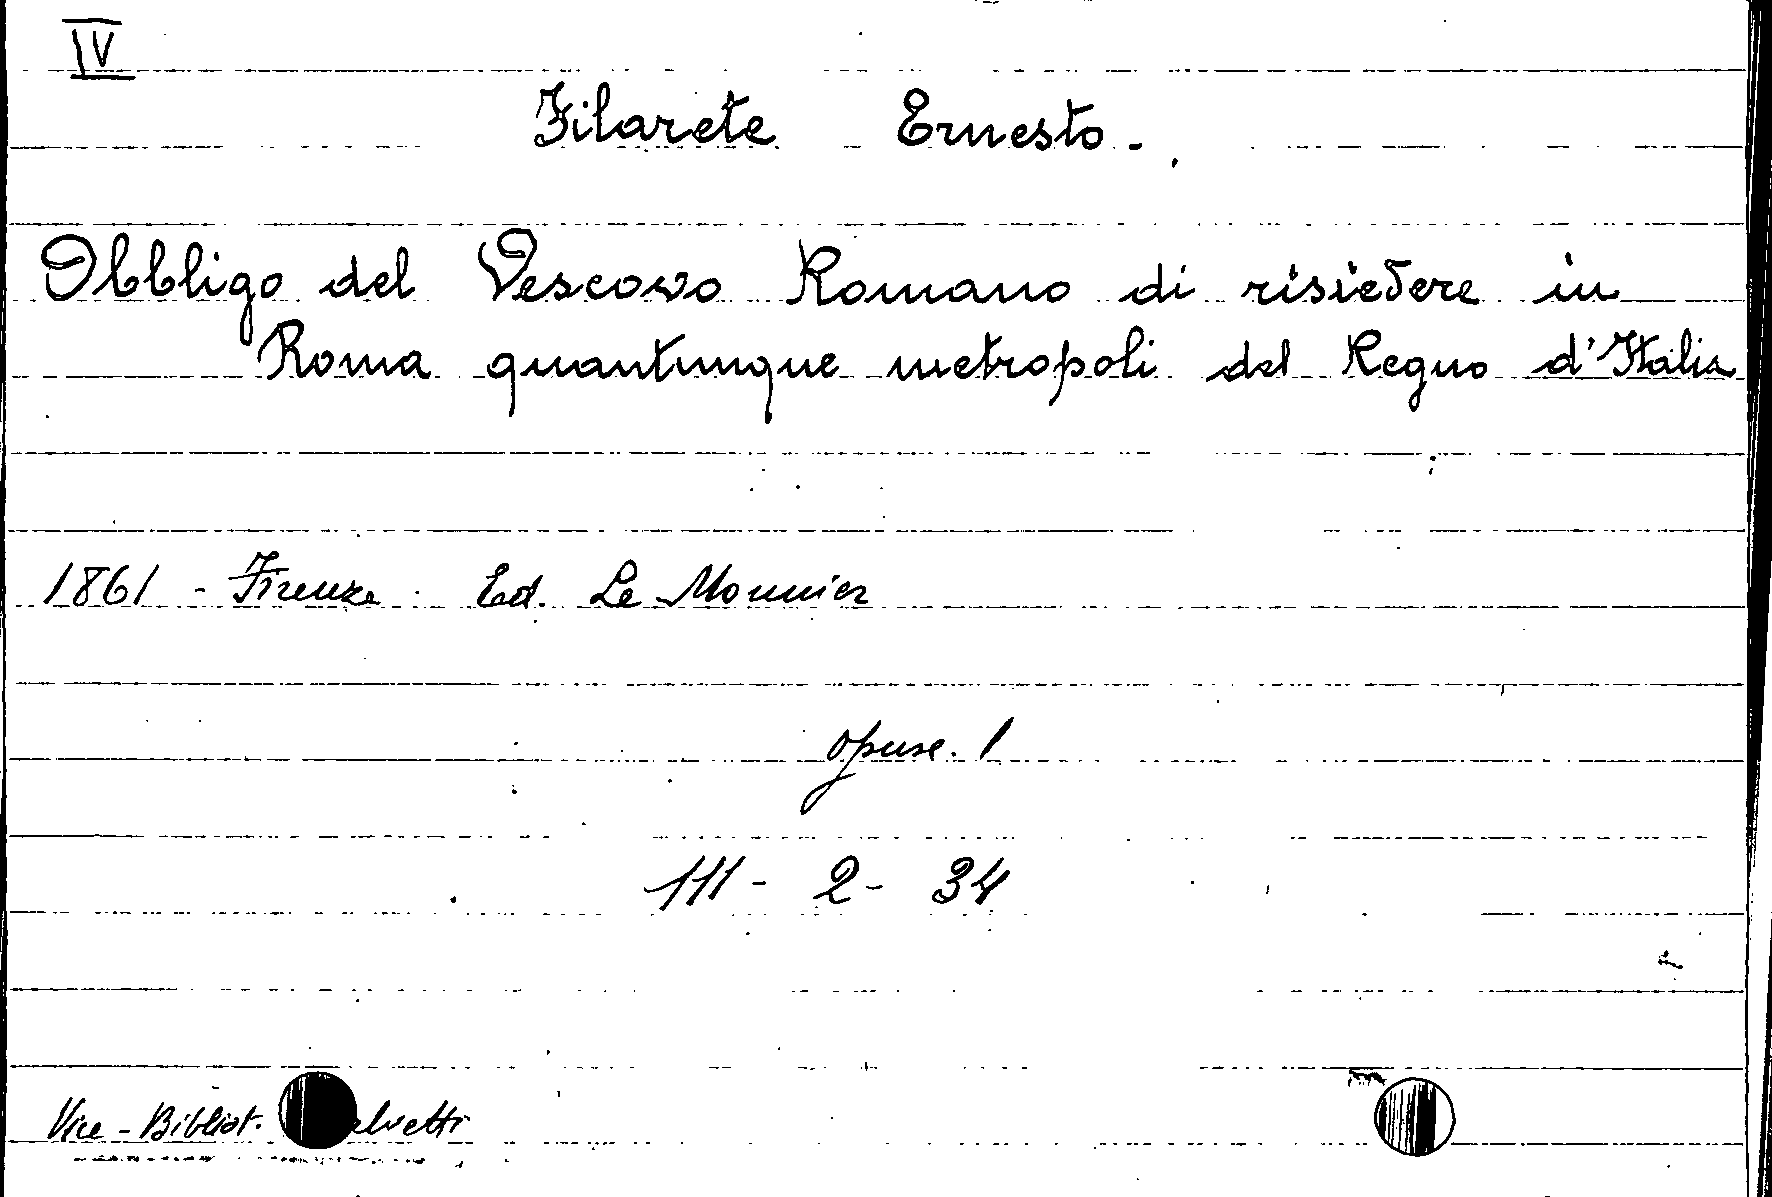 IV
Filarete Ernesto.
Obbligo del Vescovo Romano di risiedere in
Roma quantunque metropoli del Regno d'Italia
1861 - Firenze Ed. Le Monnier
opusc. 1
111 - 2 - 34
Vice - Bibliot.